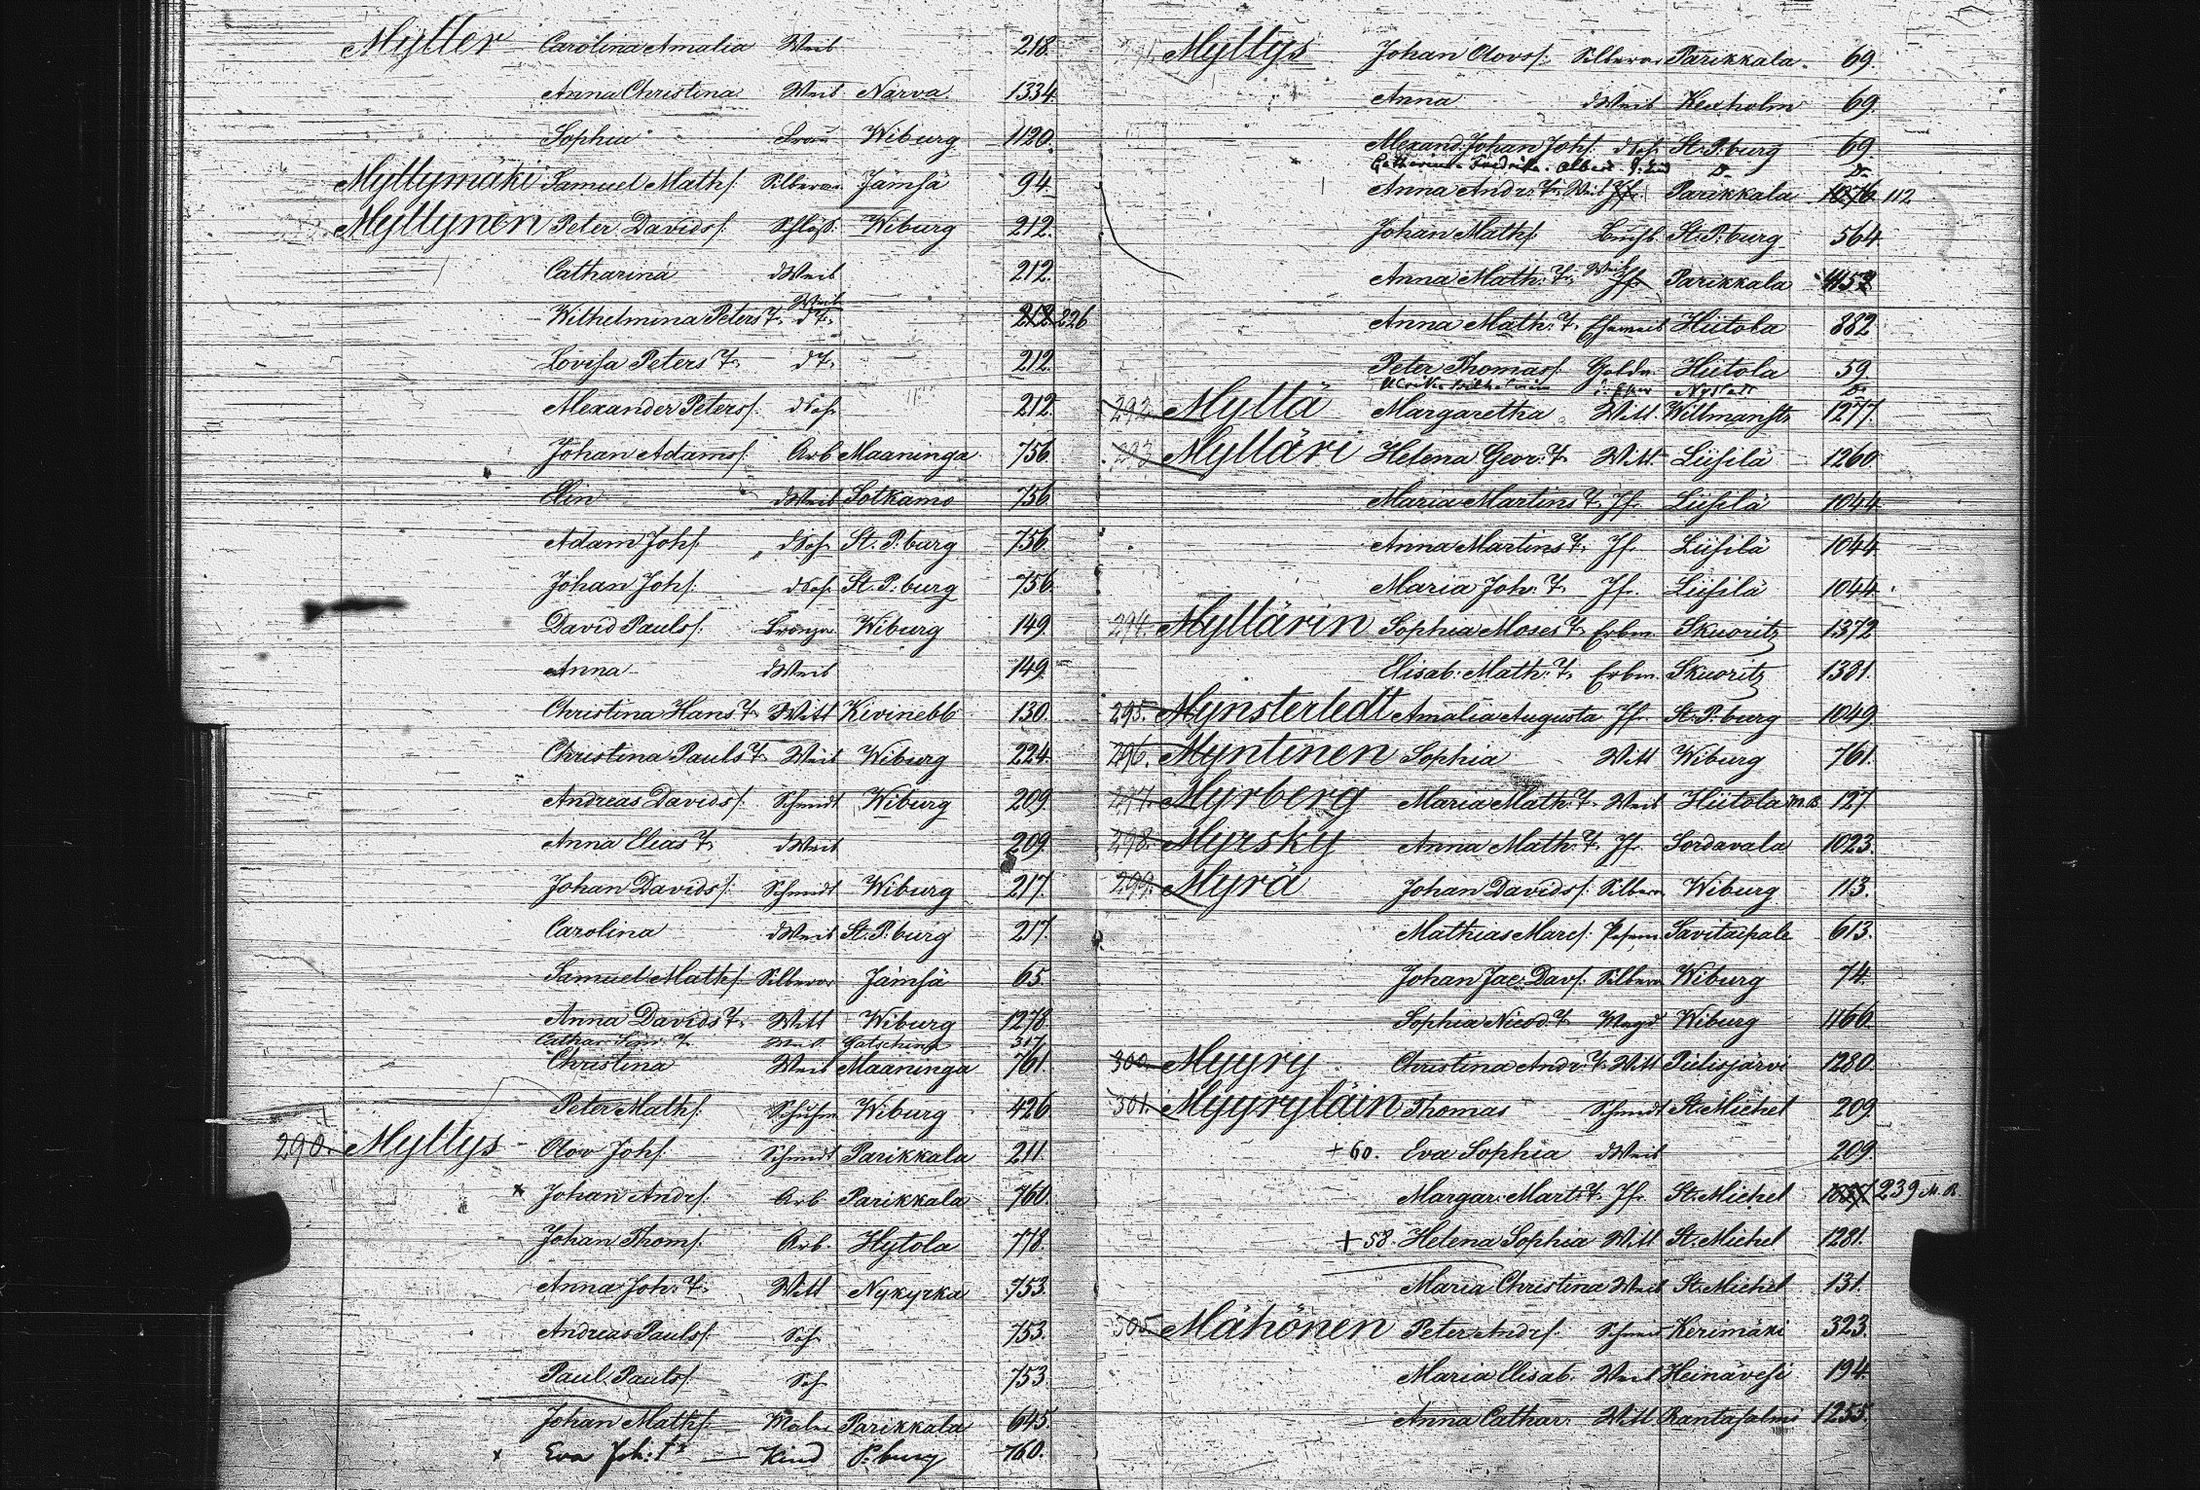 Mytter Carolina Amalia Weib 218.
Anna Christina Weib Narva 1334.
Sophia Wiburg 1120.
Myttymäki Samuel Maths. Silberar Jämsä 94.
Myttynen Peter Davids. Schloß. Wiburg 212.
Catharina dWeib 212.
Wilhelmina Peters T. Weib dT. 212 226
Lovisa Peters T. dT. 212.
Alexander Peterss. dSoh 212.
Johan Adamss. Arb Maaninga 756
Elin dWeib Sotkamo 756.
Adam Johs. dSoh St. P:burg 756.
Johan Johs. dSoh St. P:burg 756.
David Pauls. Bronzar Wiburg 149.
Anna dWeib 149.
Christina Hans T. Witt Kivinebb 130.
Christina Pauls T. Weib Wiburg 224.
Andreas Davids. Schmidt Wiburg 209.
Anna Elias T. dWeib 209.
Johan Davids. Schmidt Wiburg 217.
Carolina dWeib St. P:burg 217.
Samuel Maths. Silberar Jämsä 65.
Anna Davids T. Witt Wiburg 1278.
Cathar. T. Weib Gatschina 317
Christina Weib Maaninga 761.
Peter Maths. Schuhm Wiburg 426
290. Myttys Olov Johs. Schmidt Parikkala 211.
x Johan Andrs. Arb Parikkala 760.
Johan Thoms. Arb. Hytola 778.
Anna Joh. T. Witt Nykyrka 753.
Andreas Pauls. Soh 753.
Paul Pauls. Soh 753.
Johan Maths. Maler Parikkala 645.
x Eva Joh: tr Kind P:burg 760.
Myttys Johan Olovs. Silberar Parikkala 69.
Anna dWeib Kexholm 69.
Alexand. Johan Johs. dSoh St. P:burg 69.
Catharina Fredrika Do Do
Anna Andr: T. Weib Jf. Parikkala 1076 112
Johan Maths. Buchb St. P:burg 564
Anna Math: T. Weib Jf. Parikkala 1152
Anna Math: T. Eheweib Hiitola 882
Peter Thomass. Golda. Hiitola 59.
Ulrika Wilhelmina Nystadt Do
292. Myttä Margaretha Witt. Willmanstr. 1277.
293. Myttäri Helena Geor. T. Witt. Liisilä 1260.
Maria Martins T. Jf. Liisilä 1044.
Anna Martins T. Jf. Liisilä 1044.
Maria Joh. T. Jf. Liisilä 1044.
294. Myttärin Sophia Moses T. Erbm. Skuoritz 1372
Elisab: Math: T. Erbm. Skuoritz 1381.
295. Mynsterledt Amalia Augusta Jf. St. P:burg 1049.
296. Myntinen Sophia Witt Wiburg 761.
297. Myrberg Maria Math: T. Weib Hiitola M.B. 127.
298. Myrsky Anna Math: T. Jf. Sordavala 1023.
299. Myrä Johan Davids. Silbera Wiburg 113.
Mathias Marcs. Savitaipale 613.
Johan Jac: Davs. Silbera Wiburg 74.
Sophia Nicod. T. Magd Wiburg 1166.
300. Myyry Christina Andr: T. Witt Pielisjärvi 1280.
301. Myyryläin Thomas Schmidt St. Michel 209.
+60. Eva Sophia dWeib 209.
Margar: Marts T. Jf. St. Michel 239 M.B.
+58. Helena Sophia Witt St. Michel 1281.
Maria Christina Weib St. Michel 131.
305. Mähönen Peter Andrs. Schmid Kerimäki 323.
Maria Elisab. Weib Heinävesi 194.
Anna Cathar. Witt. Rantasalmi 1255.